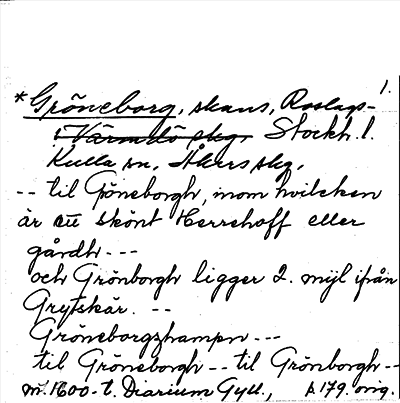 1.
*Gröneborg, skans, Roslags-
i Värmdö skg. Stockh. l.
Kulla sn, Åkers skg.
-- til Gröneborgh, inom hvilcken
är ett skönt Herrehoff eller
gårdh ---
och Grönborgh ligger 2. mijl ifrån
Grytskär. --
Gröneborgzhampn ---
til Gröneborgh -- til Grönborgh --
m. 1600-t. Diarium Gyll., p. 179. orig.